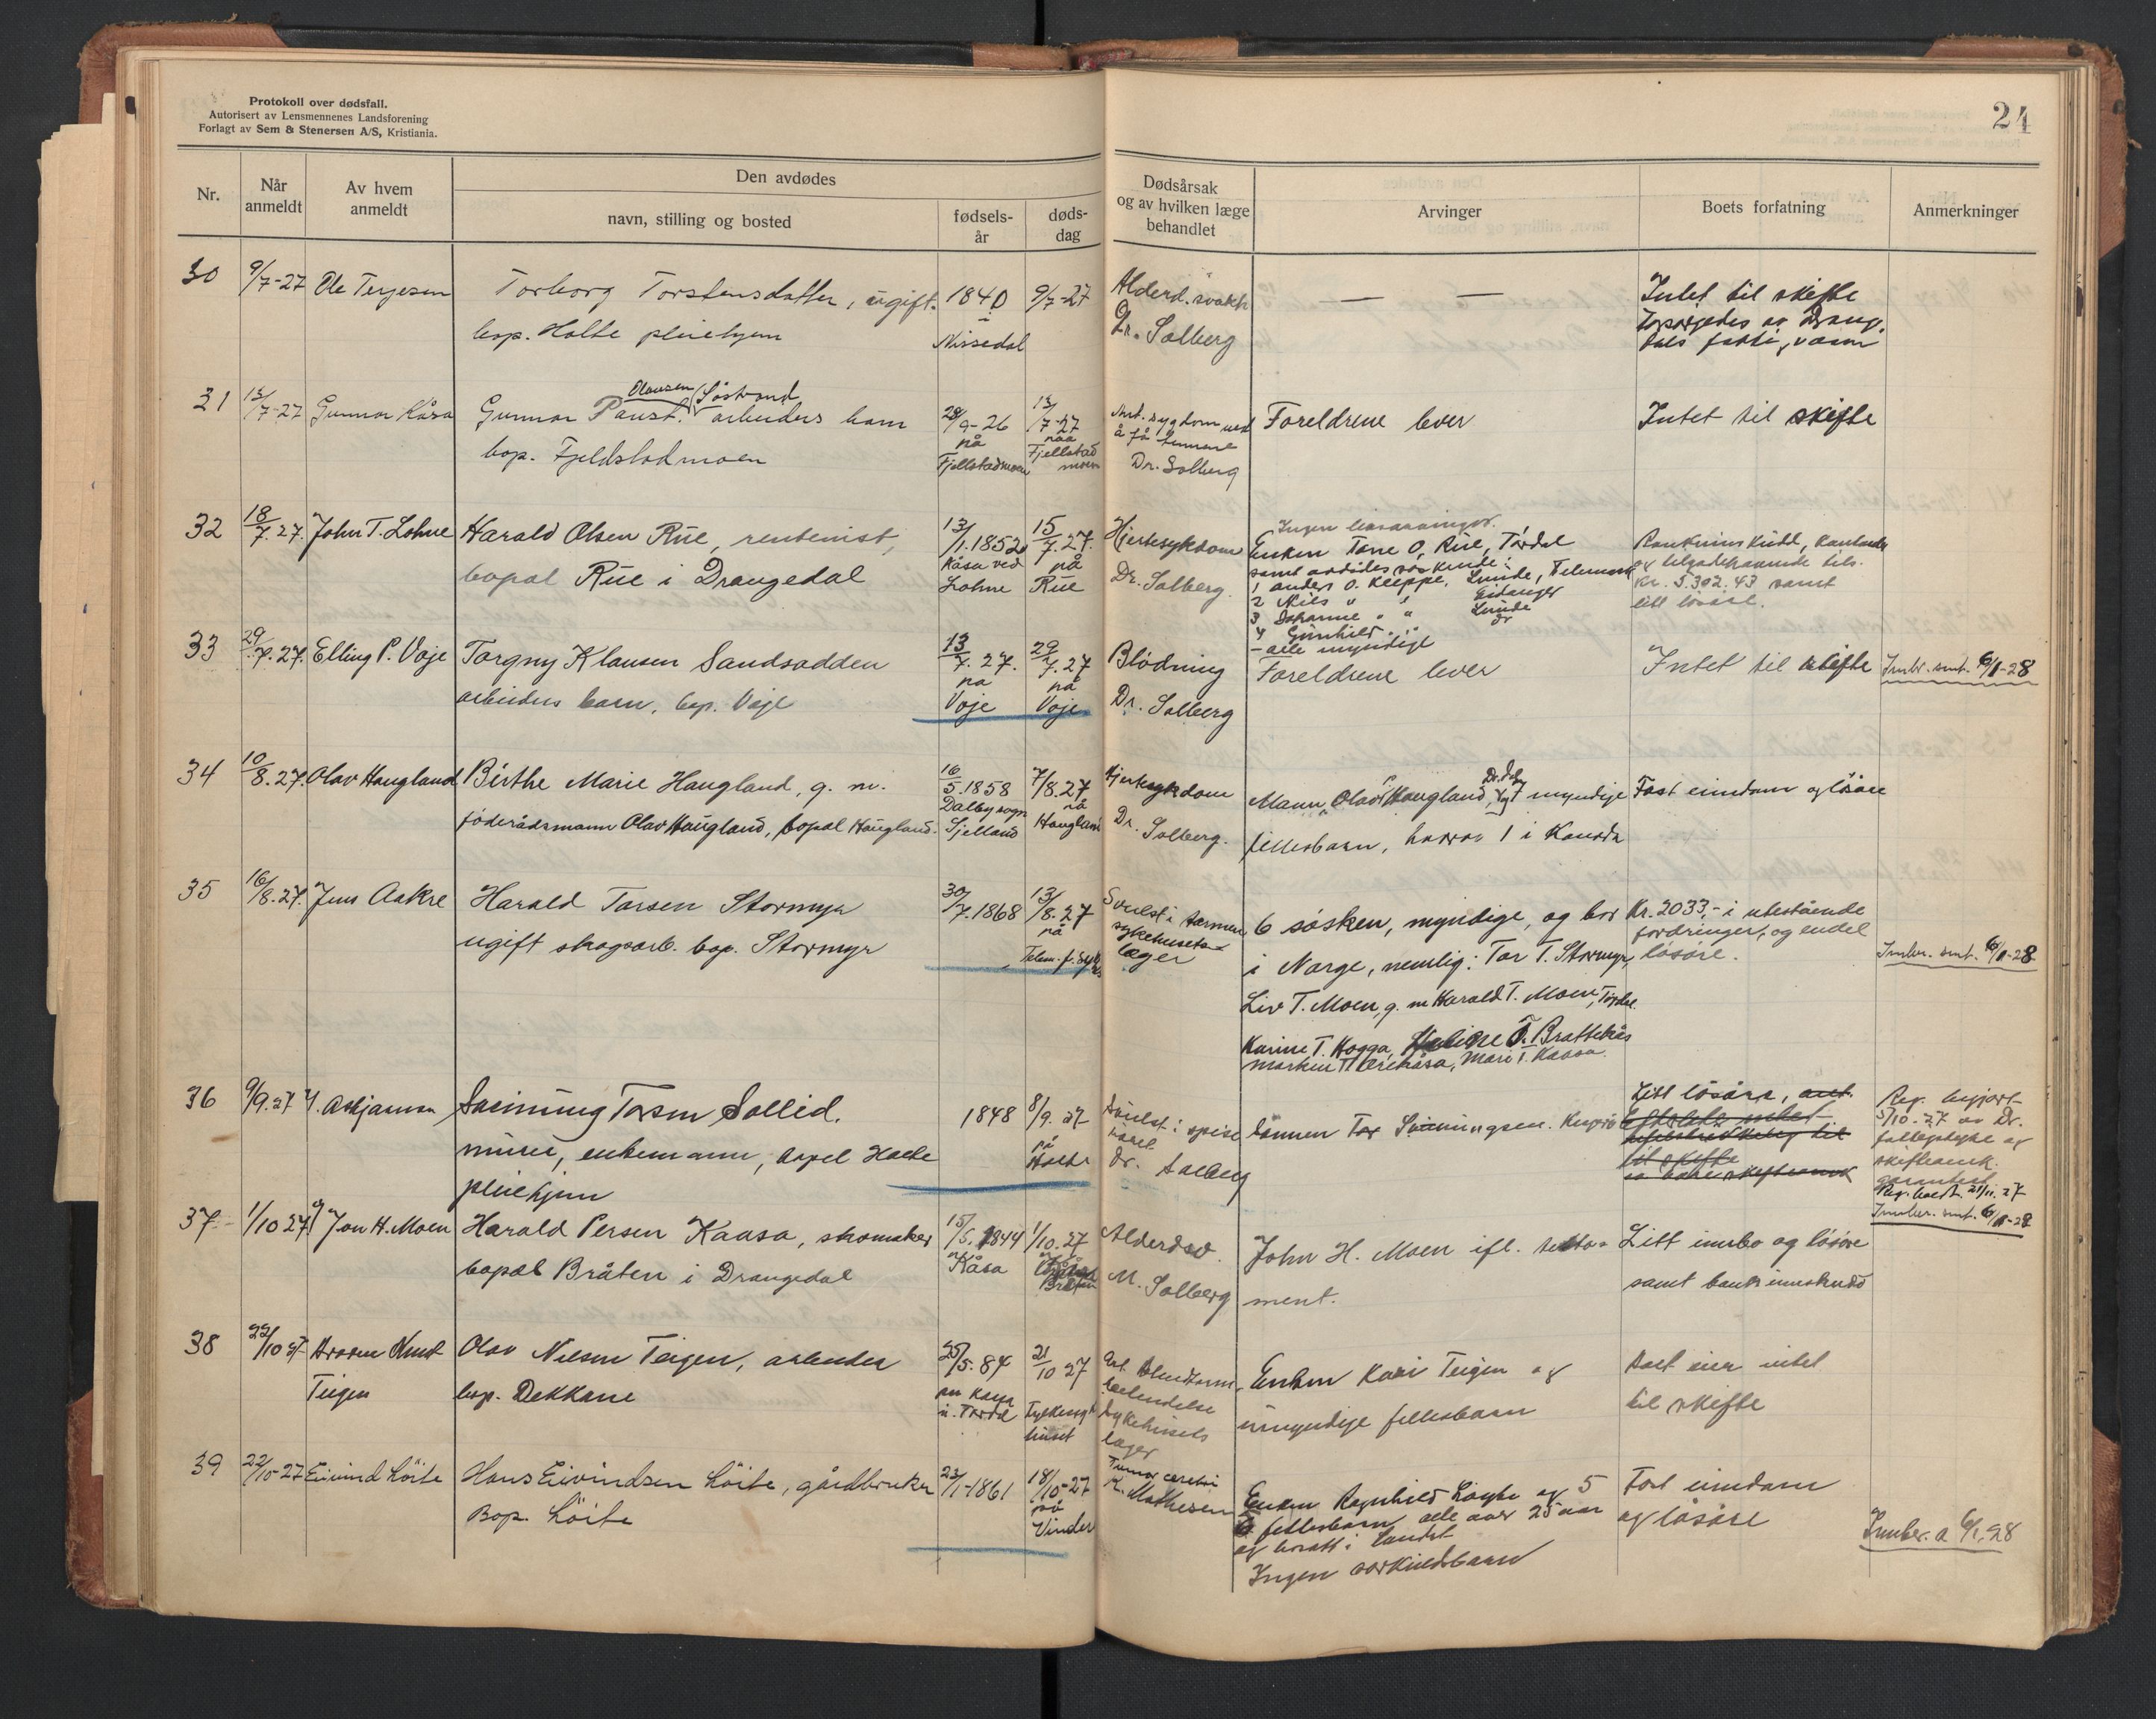 Protokoll over dødsfall.
Autorisert av Lensmennenes Landsforening
Forlagt av Sem & Stenersen A/S, Kristiania.
24
Nr.
Når anmeldt
Av hvem anmeldt
Den avdødes
navn, stilling og bosted
fødsels-år
døds-dag
Dødsårsak
og av hvilken læge
behandlet
Arvinger
Boets forfatning
Anmerkninger
30 9/7-27 Ole Terjesen Torborg Torstensdatter, ugift. 1840 9/7-27 Alderd. svakh — — Intet til skifte
bop. Holte pleiehjem i Nissedal Dr. Solberg
31 13/7-27 Gunnar Kåsa Gunnar Olausen Søstrand arbeiders barn 28/9-26 13/7-27 Foreldrene lever Intet til skifte
bop. Fjeldstadmoen på Fjellstadmoen paa Fjellstadmoen Dr. Solberg
32 18/7.27. John T. Lohne Harald Olsen Rue, rentenist, 13/1.1852 15/7.27. Hjertesykdom Ingen livsarvinger.
Enken Tone O. Rue, Tørdal
bopal Rue i Drangedal Kåsa ved Lohne på Rue Dr. Solberg.
samt avdødes søskende:
1 Anders O. Kleppe, Lunde, Telemark kr. 5.302.43 samt
2 Nils " " Eidanger litt løsøre.
3 Johanne " " Lunde
4 Gunhild " " do
- alle myndige
33 29/7.27. Elling P. Voje Torgny Klausen Sandsodden 13/7.27. 29/7.27 Blødning Foreldrene lever Intet til skifte Innber. smt. 6/1-28
arbeiders barn, bop. Voje på Voje på Voje Dr. Solberg
34 10/8.27. Olav Haugland Birthe Marie Haugland, g. m. 16/5.1858 7/8.27 Hjertesykdom Mann Olav Haugland, Dr.dal, og 7 myndige Fast eiendom og løsøre
føderådsmann Olav Haugland, bopal Haugland. Dalby sogn Sjelland på Haugland Dr. Solberg. fellesbarn, hvorav 1 i Kanada
35 16/8.27. Jens Aakre Harald Torsen Stormyr 30/7.1868 13/8.27 Svulst i tarmen 6 søsken, myndige, og bor Kr. 2033,- i utestående
fordringer, og endel
ugift skogsarb. bop. Stormyr på Telem. f. sykeh. sykehusets læger i Norge, nemlig: Tor T. Stormyr, løsøre. Innber. smt. 6/1-28
Liv T. Moen, g. m Harald T. Moen, Tørdal.
Karine T. Hogga, T. Brattekås
T. Mari T. Kaasa.
36 9/9.27 Y. Asbjørnsen Sveinung Torsen Sollid. 1848 8/9.27 Svulst i spise Sønnen Tor Sveinungsen. Litt løsøre, Reg. begjært
5/10.27 av Dr.
murer, enkemann, bopel Holte på Holte rørel
pleiehjem Dr. Solberg skifteamk.
Reg. boet. 21/11.27
Innber. smt. 6/1-28
37 1/10 27 Jon H. Moen Harald Persen Kaasa, skomaker 15/5.1844 1/10.27 Alderdsv. John H. Moen ifl. testa- Litt innbo og løsøre
bopal Bråten i Drangedal Kåsa Bråten M. Solberg ment. samt bankinnskudd
38 22/10 27 Broren Knut Olav Nilsen Teigen, arbeider 25/5.84 21/10 27 Enken Kari Teigen og Boet eier intet
Teigen bop. Dekkane Fylkessykehuset Sykehusets læger umyndige fellesbarn til skifte
39 22/10-27 Eivind Løite Hans Eivindsen Løite, gårdbruker 23/1-1861 18/10-27 Tumor cerebri Enken Ragnhild Løyte og 5 Fast eiendom
Bop. Løite på Vinder Mathesen fellesbarn alle over 25 aar og løsøre
og bosatt i landet Innber. a 6/1.28
Ingen særkuldsbarn